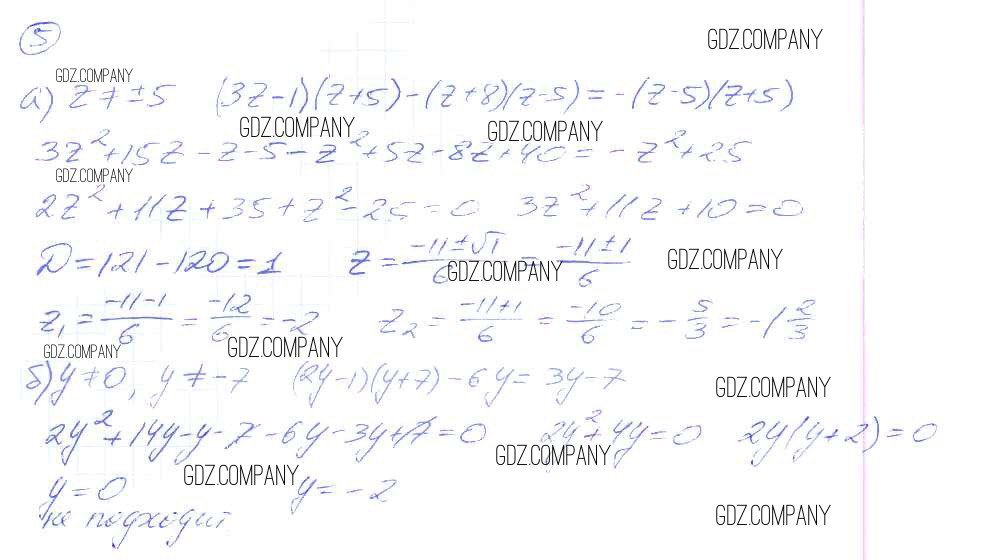 5
GDZ.COMPANY
GDZ.COMPANY
а) z ≠ ±5 (3z-1)(z+5)-(z+8)(z-5)=-(z-5)(z+5)
GDZ.COMPANY GDZ.COMPANY
3z²+15z-z-5-z²+5z-8z+40=-z²+25
GDZ.COMPANY
2z²+11z+35+z²-25=0 3z²+11z+10=0
D=121-120=1 z=(-11±√1)/6=(-11±1)/6
GDZ.COMPANY GDZ.COMPANY
z₁=(-11-1)/6=-12/6=-2 z₂=(-11+1)/6=-10/6=-5/3=-1 2/3
GDZ.COMPANY GDZ.COMPANY
б) y≠0, y≠-7 (2y-1)(y+7)-6y=3y-7
GDZ.COMPANY
2y²+14y-y-7-6y-3y+7=0 2y²+4y=0 2y(y+2)=0
GDZ.COMPANY GDZ.COMPANY
y=0 y=-2
не подходит
GDZ.COMPANY